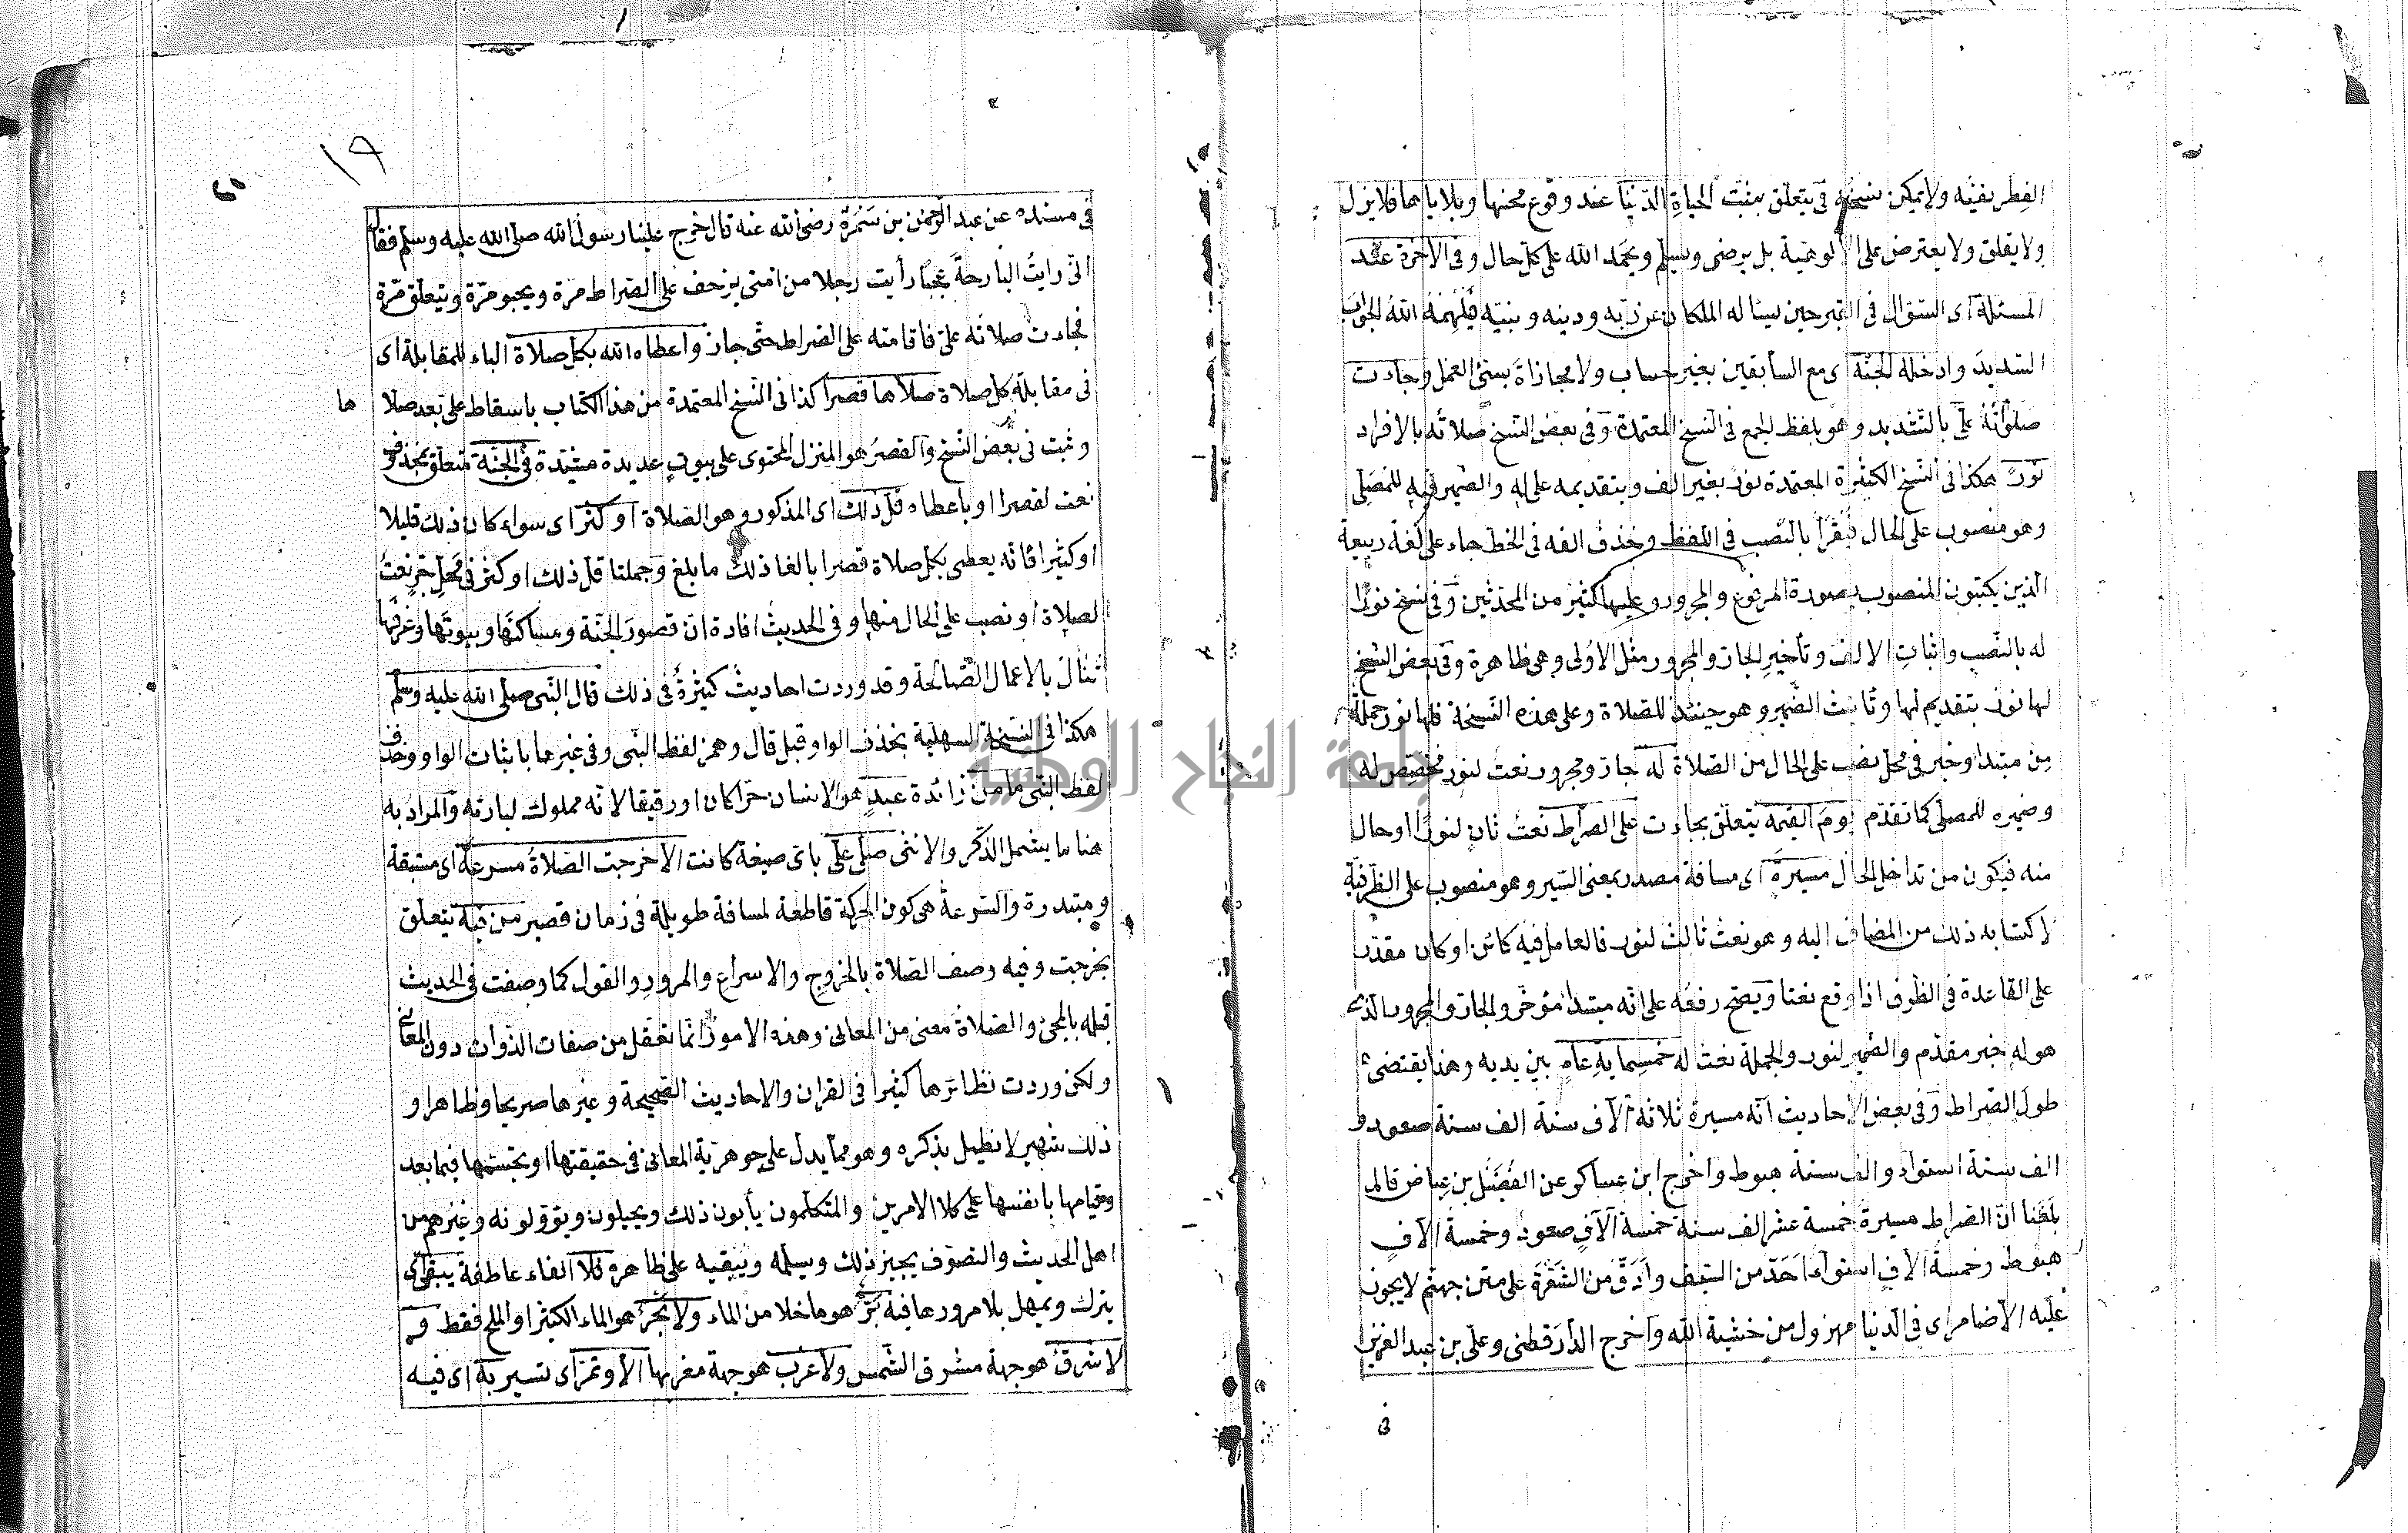 الفطر بفتنه ولا تمكين نسخه في يتعلق بيثبت الحياة الدنيا عند وقوع محنها وبلاياها فلا يزل
ولا يقلق ولا يعترض على الالوهية بل يرضى ويسلم ويحمد الله على كل حال وفي الآخرة عند
المسئلة اى السؤال في القبر حين يسأله الملكان عن ربه ودينه ونبيه فيلهمه الله الجواب
السديد وادخله الجنة اى مع السابقين بغير حساب ولا مجازاة بسئ العمل وجاءت
صلوٰته علىّ بالتشديد وهو بلفظ الجمع في النسخ المعتمدة وفي بعض النسخ صلاته بالافراد
نورٌ هكذا في النسخ الكثيرة المعتمدة نور بغير الف وبتقديمه على له والضمير فيه للمصلى
وهو منصوب على الحال فيقرأ بالنصب في اللفظ وحذف الفه في الخط جاء على لغة ربيعة
الذين يكتبون المنصوب بصورة المرفوع والمجرور وعليها كثير من المحدثين وفي نسخ نورًا
له بالنصب واثبات الالف وتأخير الجار والمجرور مثل الاولى وهى ظاهرة وفي بعض النسخ
لها نور بتقديم لها وتانيث الضمير وهو حينئذ للصلاة وعلى هذه النسخة فلها نور جملة
من مبتدا وخبر في محل نصب على الحال من الصلاة له جار ومجرور نعت لنور مخصص له
وضميره للمصلى كما تقدم يوم القيمة يتعلق بجاءت على الصراط نعت ثان لنور اوحال
منه فيكون من تداخل الحال مسيرة اى مسافة مصدر بمعنى السير وهو منصوب على الظرفية
لاكتسابه ذلك من المضاف اليه وهو نعت ثالث لنور فالعامل فيه كائن او كان مقدر
على القاعدة في الظروف اذا وقع نعتا ويصح رفعه على انه مبتدا مؤخر والجار والمجرور الذى
هو له خبر مقدم والضمير لنور والجملة نعت له خمسماية عام بين يديه وهذا يقتضى
طول الصراط وفي بعض الاحاديث انه مسيرة ثلاثة آلاف سنة الف سنة صعود و
الف سنة استواء والف سنة هبوط واخرج ابن عساكر عن الفضيل بن عياض قال
بلغنا ان الصراط مسيرة خمسة عشر الف سنة خمسة آلاف صعود وخمسة الاف
هبوط وخمسة الاف استواء احدّ من السيف وادقّ من الشعرة على متن جهنم لا يجوز
عليه الا ضامر اى في الدنيا مهزول من خشية الله واخرج الدارقطنى وعلى بن عبد العزيز
في
١٩
في مسنده عن عبد الرحمن بن سمرة رضى الله عنه قال خرج علينا رسول الله صلى الله عليه وسلم فقال
انى رايت البارحة عجبا رأيت رجلا من امتى يزحف على الصراط مرة ويحبو مرة ويتعلق مرة
فجاءت صلاته علىّ فاقامته على الصراط حتى جاز واعطاه الله بكل صلاة الباء للمقابلة اى
في مقابلة كل صلاة صلاها قصرا كذا في النسخ المعتمدة من هذا الكتاب باسقاط علىّ بعد صلا
ها
وثبت في بعض النسخ والقصر هو المنزل المحتوى على بيوت عديدة مشيدة في الجنة متعلق بمحذوف
نعت لقصرا او باعطاه قل ذلك اى المذكور وهو الصلاة او كثر اى سواء كان ذلك قليلا
او كثيرا فانه يعطى بكل صلاة قصرا بالغا ذلك ما بلغ وجملتا قل ذلك او كثر في محل جر نعت
لصلاة او نصب على الحال منها وفي الحديث افادة ان قصور الجنة ومساكنها وبيوتها وغرفها
تنال بالاعمال الصالحة وقد وردت احاديث كثيرة في ذلك قال النبى صلى الله عليه وسلم
هكذا في النسخة السهلية بحذف الواو قبل قال وهمز لفظ النبى وفي غيرها باثبات الواو وحذف
لفظ النبى ما من زائدة عبد هو الانسان حرا كان او رقيقا لانه مملوك لبارئه والمراد به
هنا ما يشمل الذكر والانثى صلى علىّ باى صيغة كانت الا خرجت الصلاة مسرعة اى مستبقة
ومبتدرة والسرعة هى كون الحركة قاطعة لمسافة طويلة في زمان قصير من فيه يتعلق
بخرجت وفيه وصف الصلاة بالخروج والاسراع والمرور والقول كما وصفت في الحديث
قبله بالمجئ والصلاة معنى من المعانى وهذه الامور انما تعقل من صفات الذوات دون المعانى
ولكن وردت نظائرها كثيرا في القران والاحاديث الصحيحة وغيرها صريحا وظاهرا و
ذلك شهير لا نطيل بذكره وهو مما يدل على جوهرية المعانى في حقيقتها او تجسمها فيما بعد
وقيامها بانفسها على كلا الامرين والمتكلمون يأبون ذلك ويحيلون ويؤولونه وغيرهم من
اهل الحديث والتصوف يجيز ذلك ويسلمه ويبقيه على ظاهره فلا الفاء عاطفة يبقى اى
يترك ويمهل بلا مرورها فيه برّ هو ما خلا من الماء ولا بحر هو الماء الكثير او الملح فقط و
لا شرق هو جهة مشرق الشمس ولا غرب هو جهة مغربها الا وتمر اى تسير به اى فيه
جامعة النجاح الوطنية